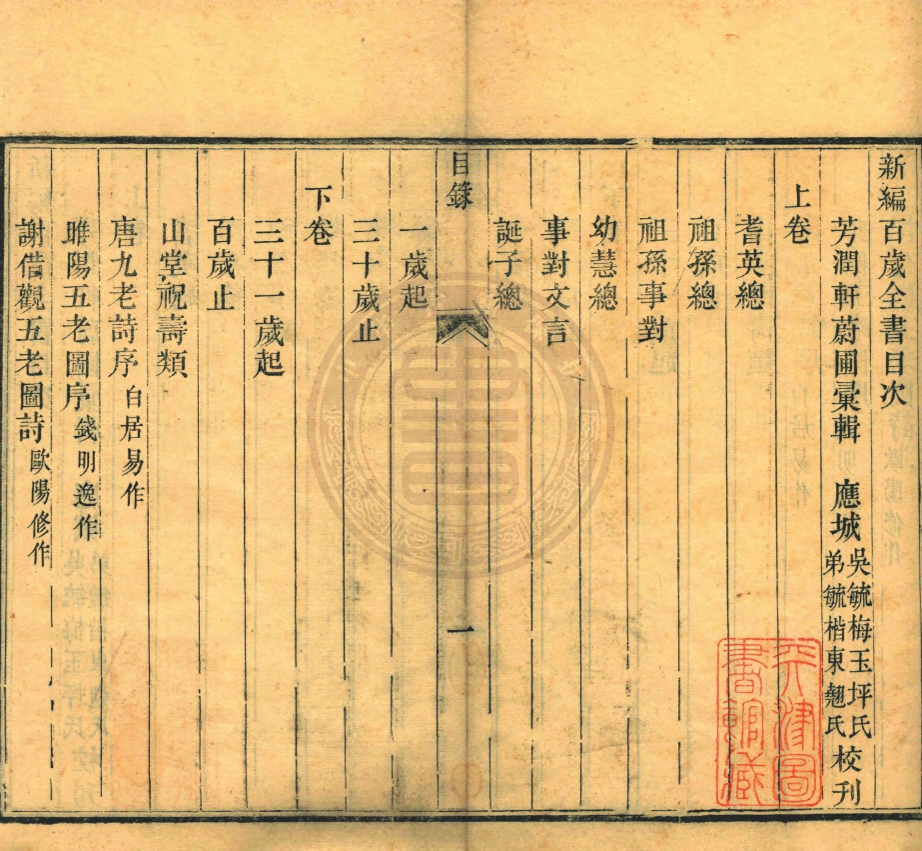 新編百歲全書目次
芳潤軒蔚圃彙輯 應城 吳毓梅玉坪氏 弟毓楷東翹氏 校刊
上卷
耆英總
祖孫總
祖孫事對
幼慧總
事對文言
誕子總
目錄 一
一歲起
三十歲止
下卷
三十一歲起
百歲止
山堂祝壽類
唐九老詩序 白居易作
睢陽五老圖序 錢明逸作
謝借觀五老圖詩 歐陽修作
天津圖書館藏